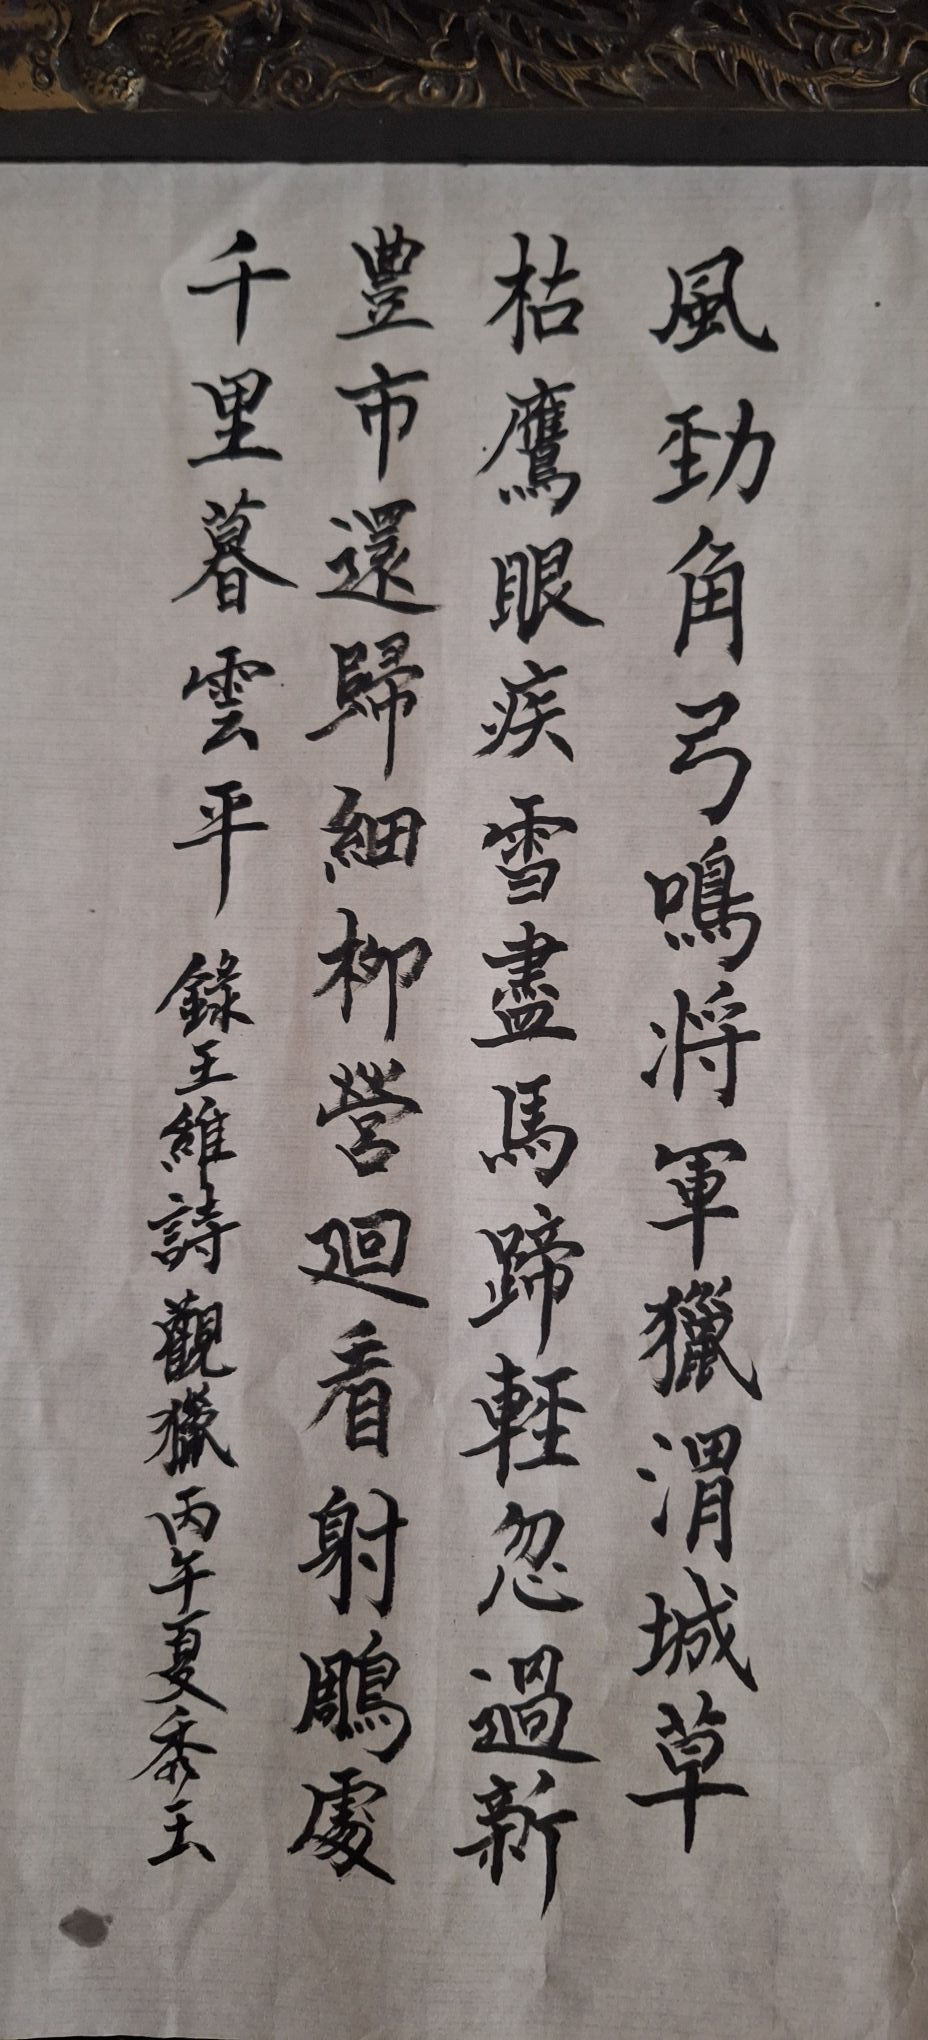 風勁角弓鳴將軍獵渭城草
枯鷹眼疾雪盡馬蹄輕忽過新
豐市還歸細柳營迴看射鵰處
千里暮雲平 錄王維詩觀獵丙午夏黍玉